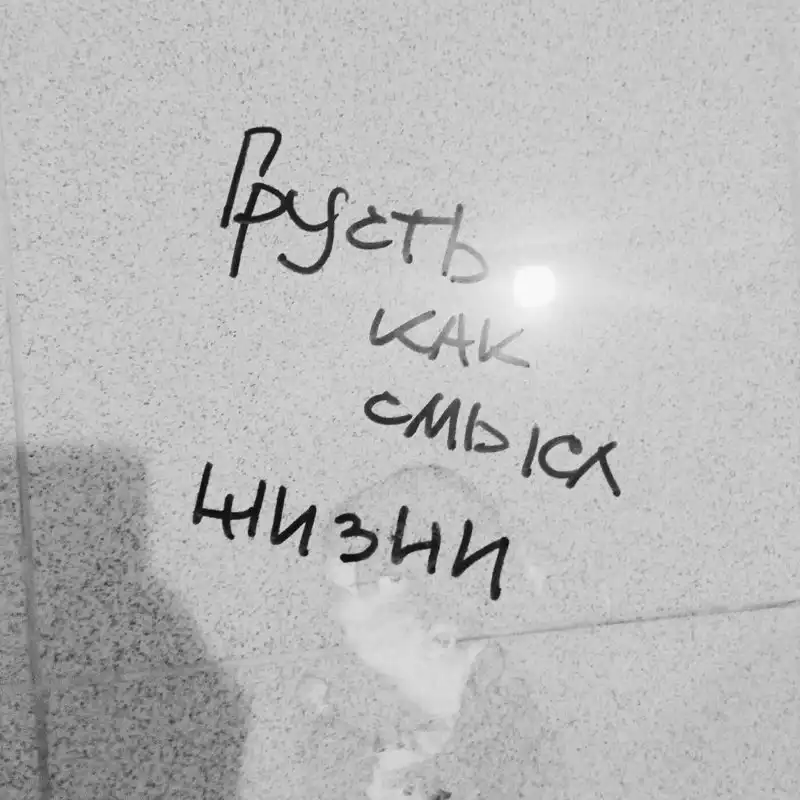 Грусть
как
смысл
жизни